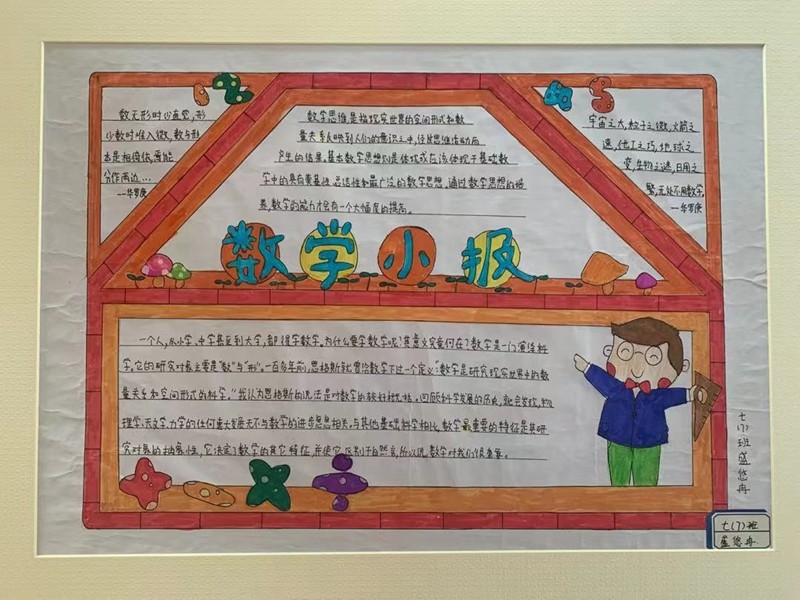 数无形时少直觉,形
少数时难入微,数与形
本是相倚依,焉能
分作两边...
——华罗庚
数学思维是指现实世界的空间形式和数
量关系反映到人们的意识之中,经过思维活动而
产生的结果。基本数学思想则是体现或应该体现于基础数
学中的具有奠基性、总结性和最广泛的数学思想,通过数学思想的培
养,数学的能力才会有一个大幅度的提高。
宇宙之大,粒子之微,火箭之
速,化工之巧,地球之
变,生物之谜,日用之
繁,无处不用数学,
——华罗庚
数学小报
一个人,从小学、中学甚至到大学,都得学数学。为什么要学数学呢?其意义究竟何在?数学是一门演绎科
学,它的研究对象主要是"数"与"形"。一百多年前,恩格斯就曾给数学下过一个定义"数学是研究现实世界中的数
量关系和空间形式的科学,"我认为恩格斯的说法是对数学的较好概括。回顾科学发展的历史,就会发现,物
理学、天文学、力学的任何重大发展无不与数学的进步息息相关,与其他基础科学相比,数学最重要的特征是其研
究对象的抽象性,它决定了数学的其它特征,并使它区别于自然言,所以说,数学对我们很重要。
七(7)班盛悠冉
七(7)班
盛悠冉